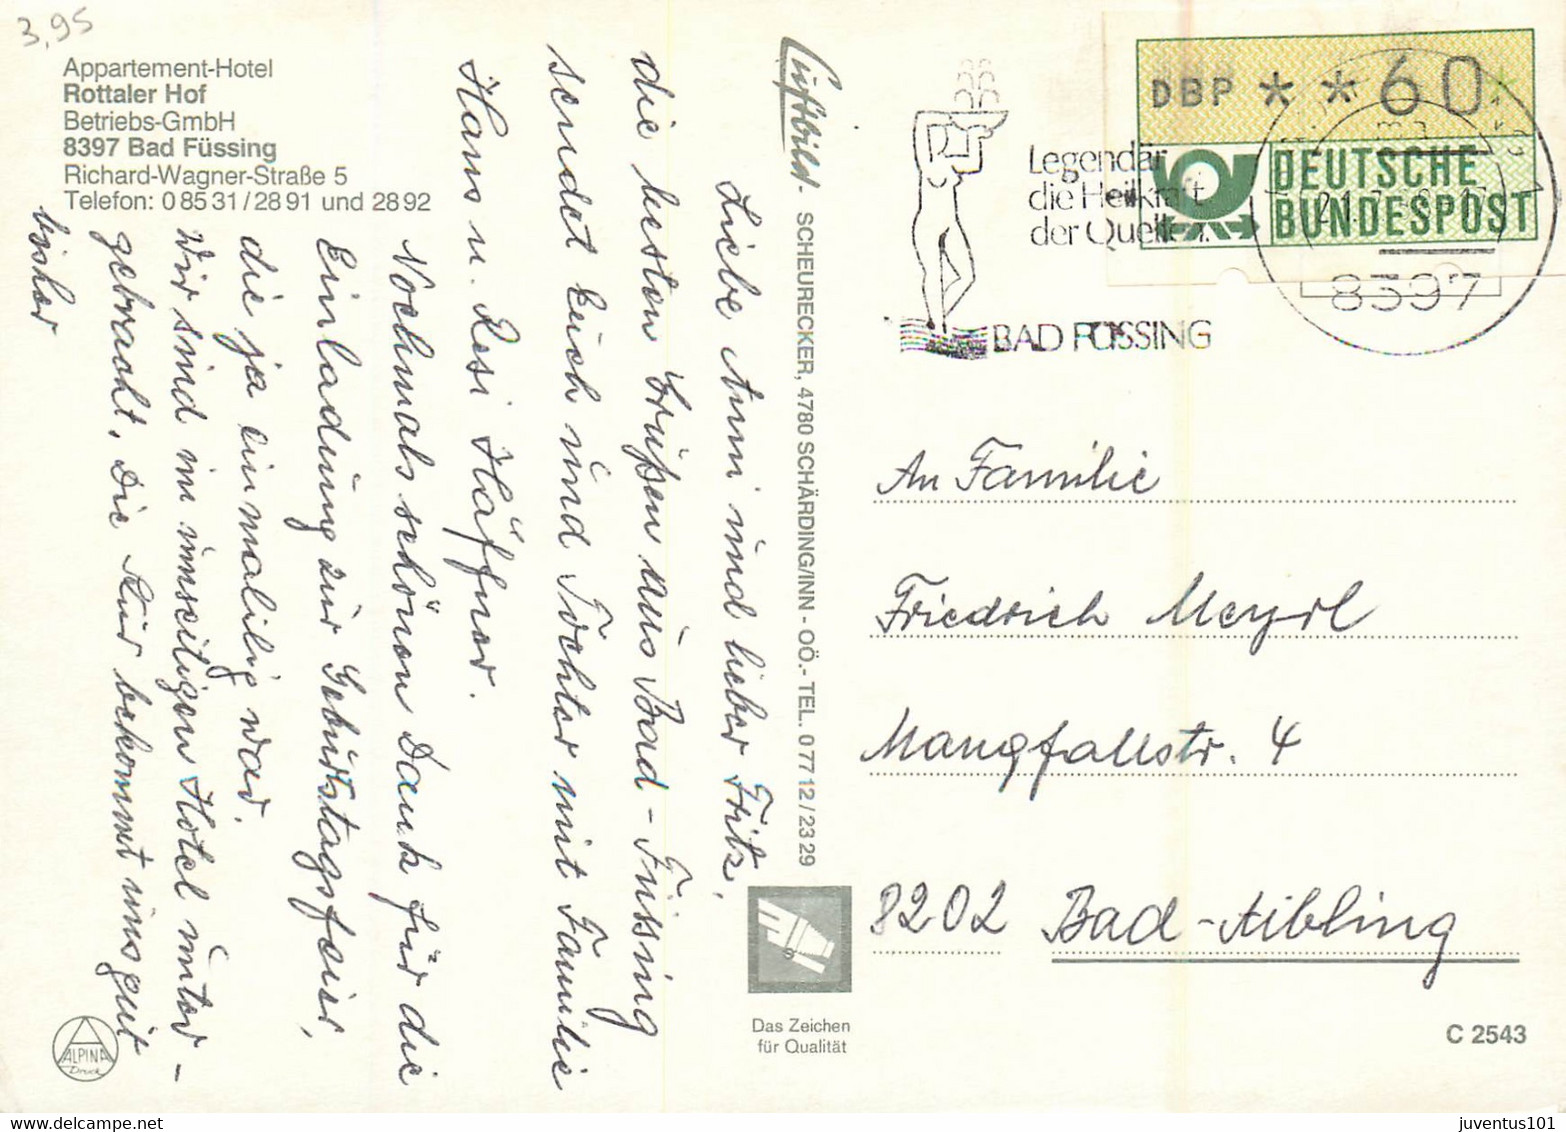 3,95
Appartement-Hotel
Rottaler Hof
Betriebs-GmbH
8397 Bad Füssing
Richard-Wagner-Straße 5
Telefon: 0 85 31 / 28 91 und 28 92
Liebe Anni und lieber Fritz,
die besten Grüßen aus Bad-Füssing
sendet Euch und Tochter mit Familie
Hans u. Resi Häffner.
Nochmals schönen Dank für die
Einladung zur Geburtstagsfeier,
die ja einmalig war.
Wir sind im unseitigen Hotel unter-
gebracht. Die Kur bekommt uns gut
bisher
Luftbild - SCHEURECKER, 4780 SCHÄRDING/INN - OÖ. - TEL. 0 77 12 / 23 29
Legendär
die Heilkraft
der Quellen.
BAD FÜSSING
DBP * * 60
DEUTSCHE
BUNDESPOST
8397
An Familie
Friedrich Meyrl
Mangfallstr. 4
8202 Bad-Aibling
Das Zeichen
für Qualität
C 2543
ALPINA
Druck
juventus101